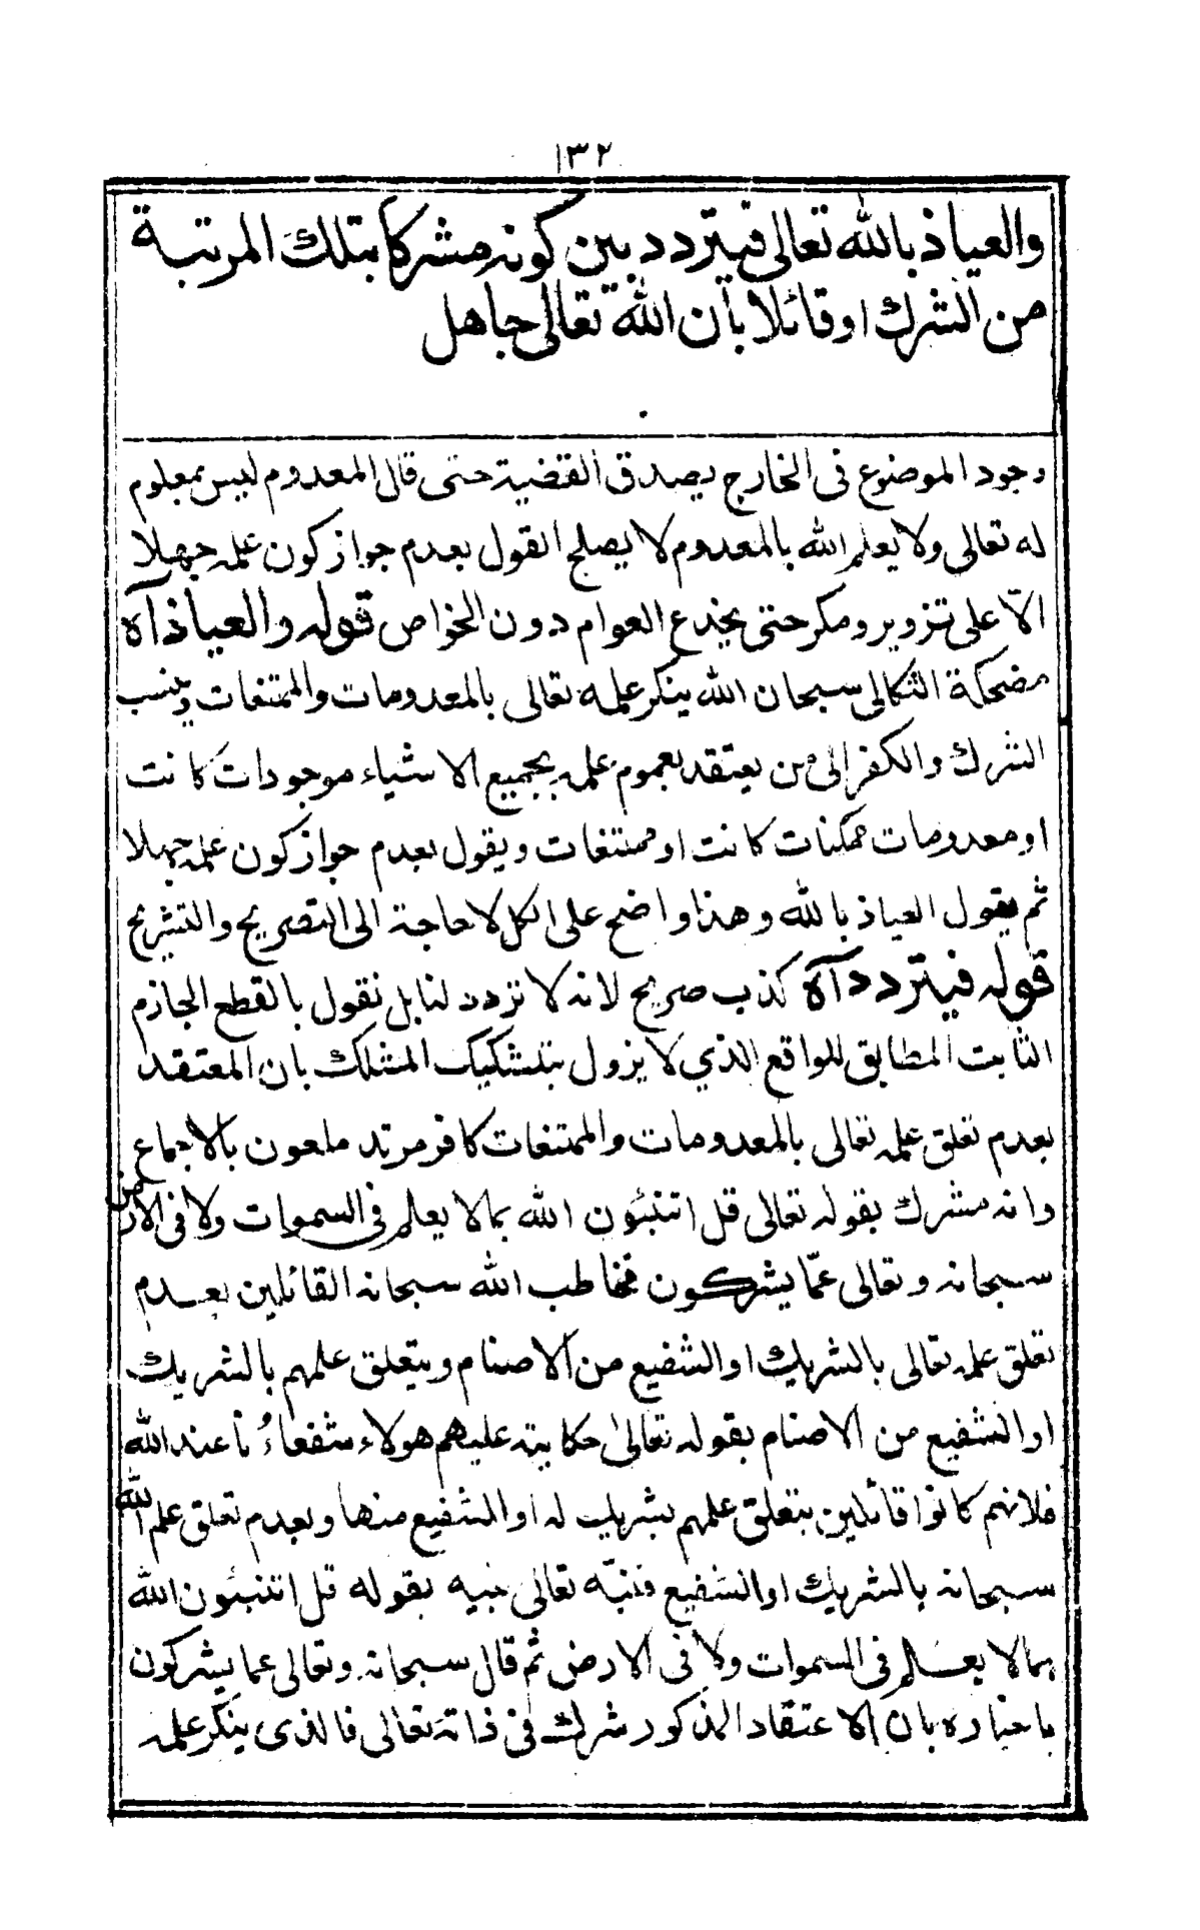 ١٣٢
والعياذ بالله تعالى فيتردد بين كونه مشركا بتلك المرتبة
من الشرك او قائلا بأن الله تعالى جاهل
وجود الموضوع فى الخارج يصدق القضية حتى قال المعدوم ليس بمعلوم
له تعالى ولا يعلم الله بالمعدوم لا يصلح القول بعدم جواز كون علمه جهلا
الّا على تزوير ومكر حتى يخدع العوام دون الخواص قوله والعياذ آه
مضحكة الثكالى سبحان الله ينكر علمه تعالى بالمعدومات والممتنعات وينسب
الشرك والكفر الى من يعتقد بعموم علمه بجميع الاشياء موجودات كانت
او معدومات ممكنات كانت او ممتنعات ويقول بعدم جواز كون علمه جهلا
ثم يقول العياذ بالله وهذا واضح على الكل لا حاجة الى التصريح والتشريح
قوله فيتردد آه كذب صريح لانه لا تردد لنا بل نقول بالقطع الجازم
الثابت المطابق للواقع الذي لا يزول بتشكيك المشكك بان المعتقد
بعدم تعلق علمه تعالى بالمعدومات والممتنعات كافر مرتد ملعون بالاجماع
وانه مشرك بقوله تعالى قل اتنبئون الله بمالا يعلم فى السموات ولا فى الارض
سبحانه وتعالى عمّا يشركون فخاطب الله سبحانه القائلين بعدم
تعلق علمه تعالى بالشريك او الشفيع من الاصنام ويتعلق علمهم بالشريك
او الشفيع من الاصنام بقوله تعالىٰ حكاية عليهم هولاء شفعاءُنا عند الله
فلانهم كانوا قائلين بتعلق علمهم بشريك له او الشفيع منها وبعدم تعلق علم الله
سبحانه بالشريك او الشفيع فنبّه تعالى نبيه بقوله قل اتنبئون الله
بمالا يعلم فى السموات ولا فى الارض ثم قال سبحانه وتعالى عما يشركون
باخباره بان الاعتقاد المذكور شرك فى ذاته تعالى فالذى ينكر علمه